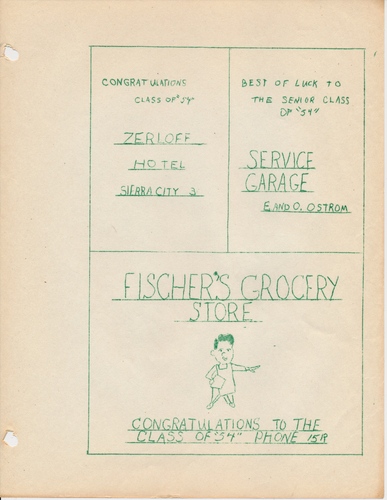 CONGRATULATIONS
CLASS OF "54"
ZERLOFF
HOTEL
SIERRA CITY 3
BEST OF LUCK TO
THE SENIOR CLASS
OF "54"
SERVICE
GARAGE
E. AND O. OSTROM
FISCHER'S GROCERY
STORE
CONGRATULATIONS TO THE
CLASS OF "54" PHONE 15R